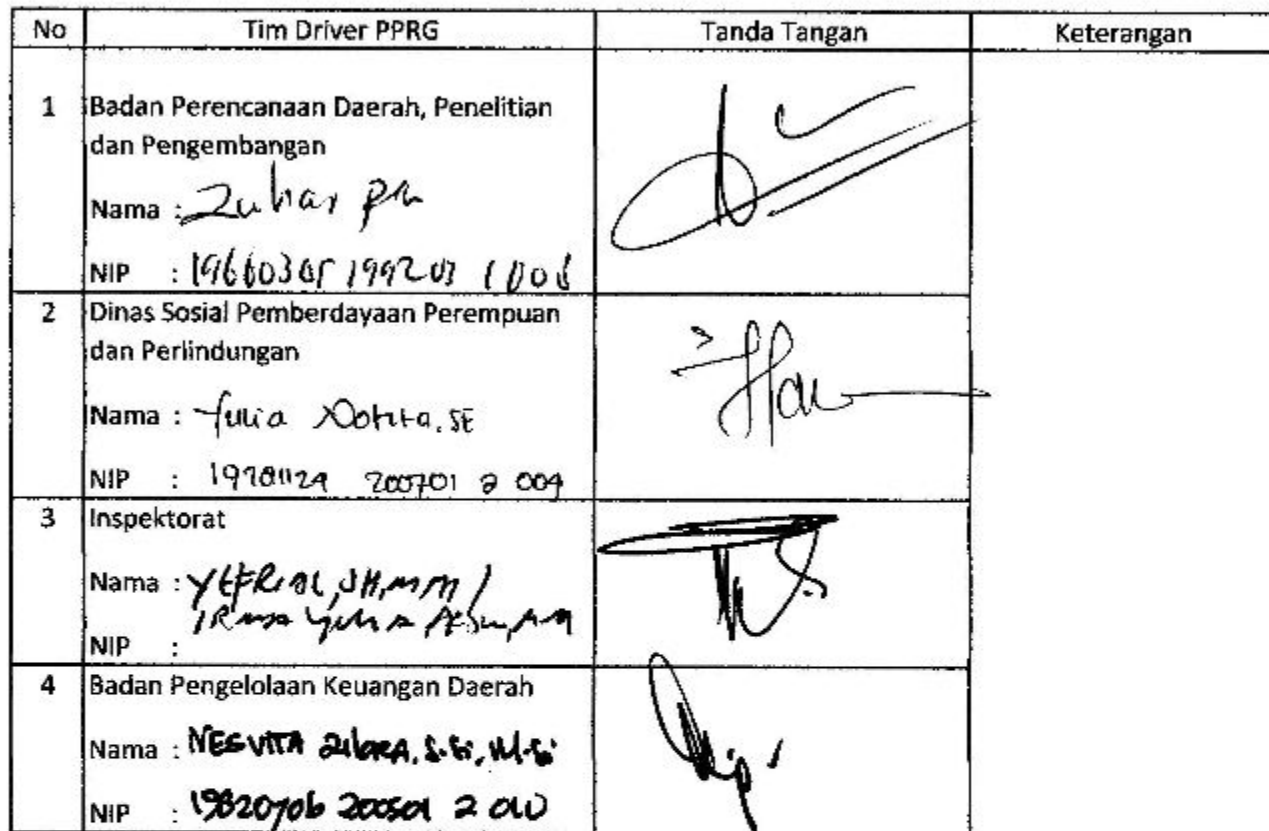 No Tim Driver PPRG Tanda Tangan Keterangan
1 Badan Perencanaan Daerah, Penelitian
dan Pengembangan
Nama : Zuhar
NIP :
2 Dinas Sosial Pemberdayaan Perempuan
dan Perlindungan
Nama : Yulia , SE
NIP : 200701 2 004
3 Inspektorat
Nama : YEFRIAL, SH, MM /
NIP :
4 Badan Pengelolaan Keuangan Daerah
Nama : NESVITA
NIP : 19820706 200501 2 010